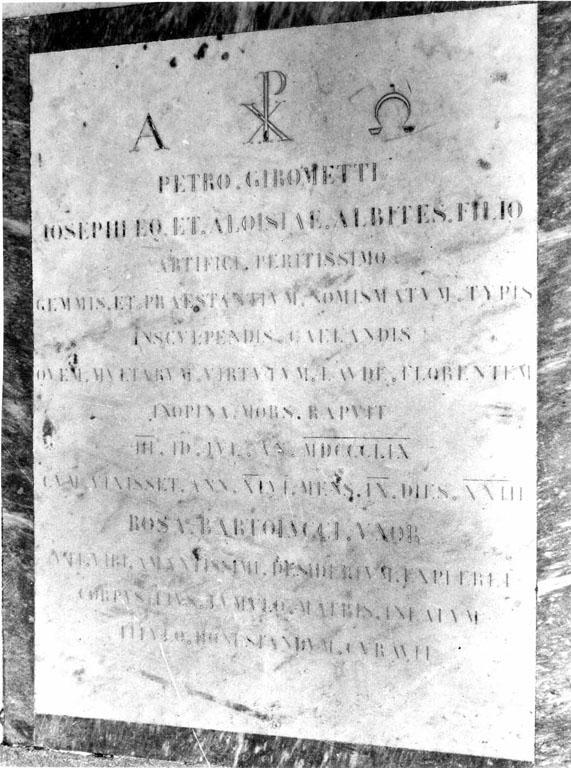 A ☧ Ω
PETRO . GIROMETTI
IOSEPHI EQ . ET . ALOISIAE . ALBITES . FILIO
ARTIFICI . PERITISSIMO
GEMMIS . ET . PRAESTANTIVM . NOMISMATVM . TYPIS
INSCVLPENDIS . CAELANDIS
QVEM . MVLTARVM . VIRTVTVM . LAVDE . FLORENTEM
INOPINA . MORS . RAPVIT
III . ID . IVL . AN . MDCCCLIX
CVM . VIXISSET . ANN . XLVI . MENS . IX . DIES . XXIII
ROSA . BARTOLACCI . VXOR
VT . VIRI . AMANTISSIMI . DESIDERIVM . EXPLERET
CORPVS . EIVS . TVMVLO . MATRIS . INLATVM
TITVLO . HONESTANDVM . CVRAVIT